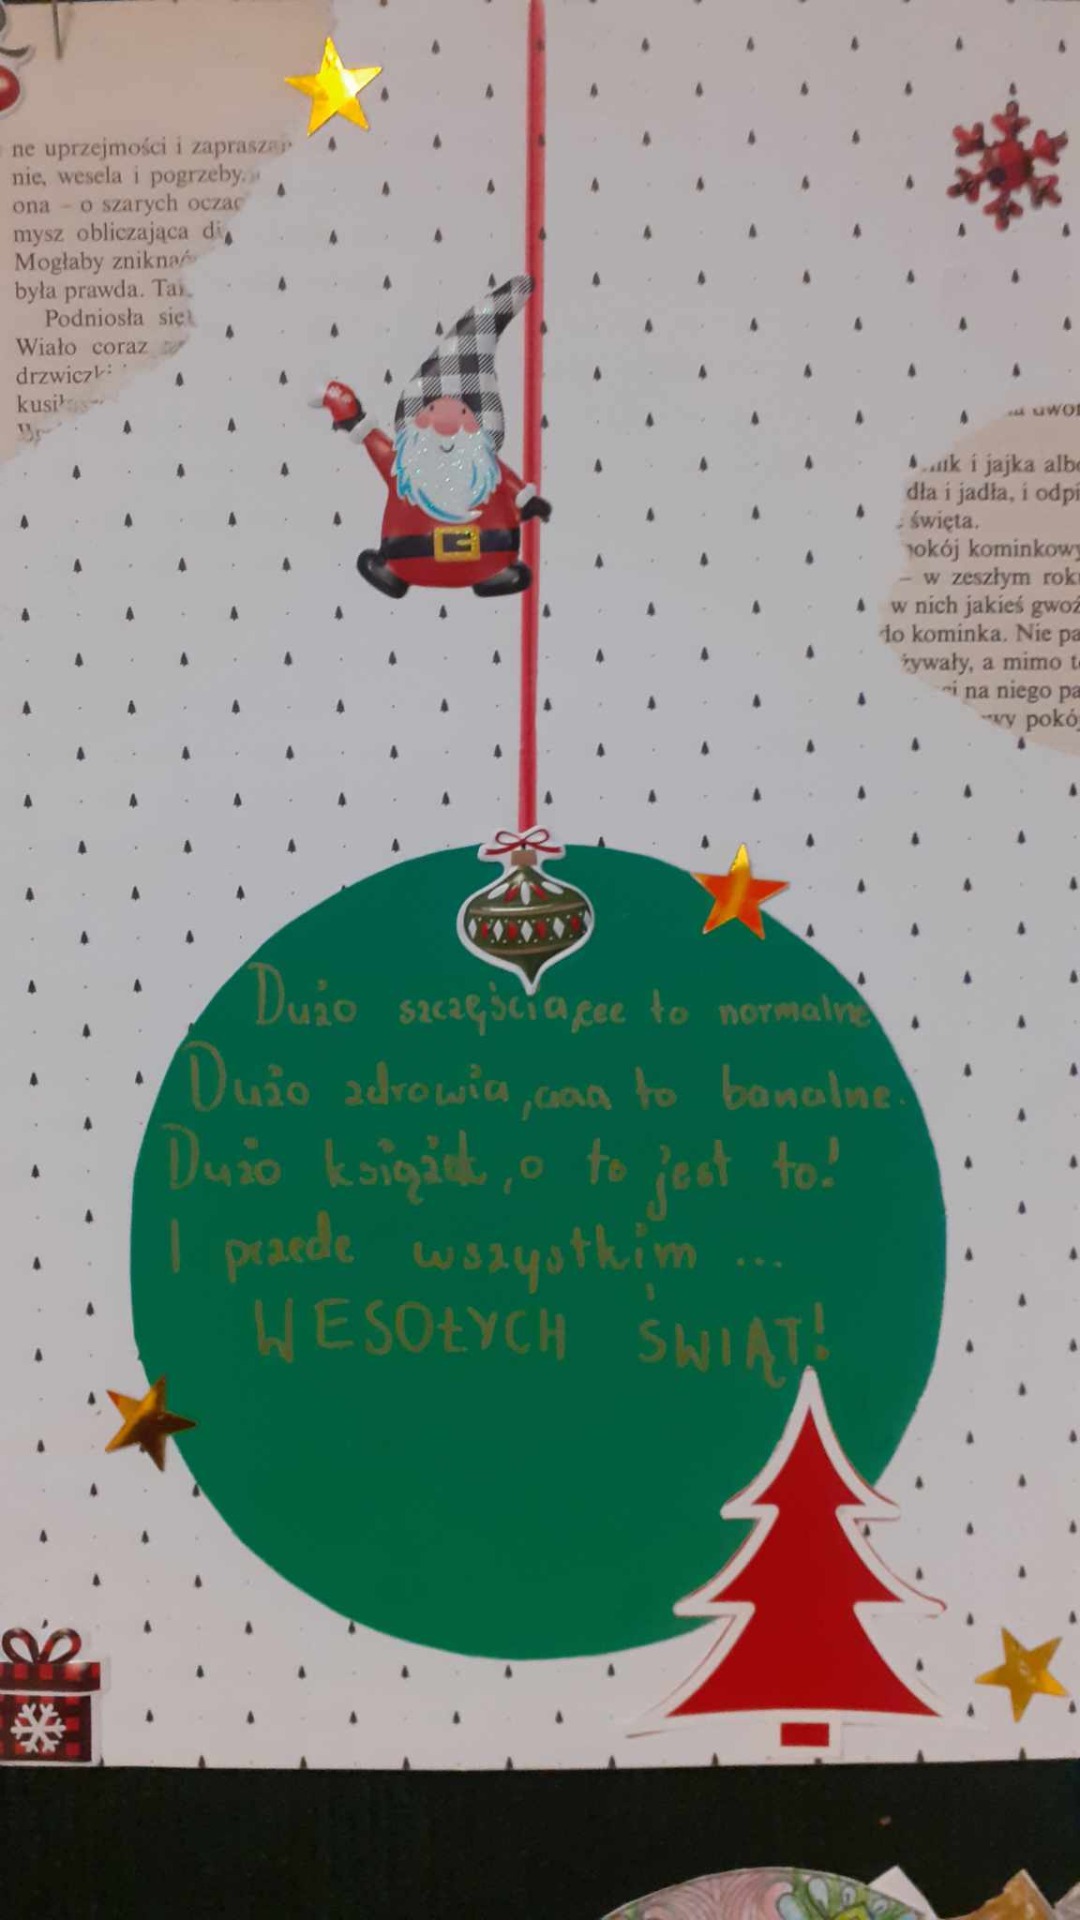 ne uprzejmości i zaprasza
nie, wesela i pogrzeby.
ona – o szarych oczac
mysz obliczająca di
Mogłaby zniknąć
była prawda. Ta
Podniosła się
Wiało coraz
drzwiczk
kusił
nik i jajka albo
dła i jadła, i odpi
święta.
pokój kominkowy
– w zeszłym roku
w nich jakieś gwoź
do kominka. Nie pa
żywały, a mimo to
ci na niego pa
wy pokój
Dużo szczęścia, eee to normalne
Dużo zdrowia, aaa to banalne.
Dużo książek, o to jest to!
I przede wszystkim ...
WESOŁYCH ŚWIĄT!